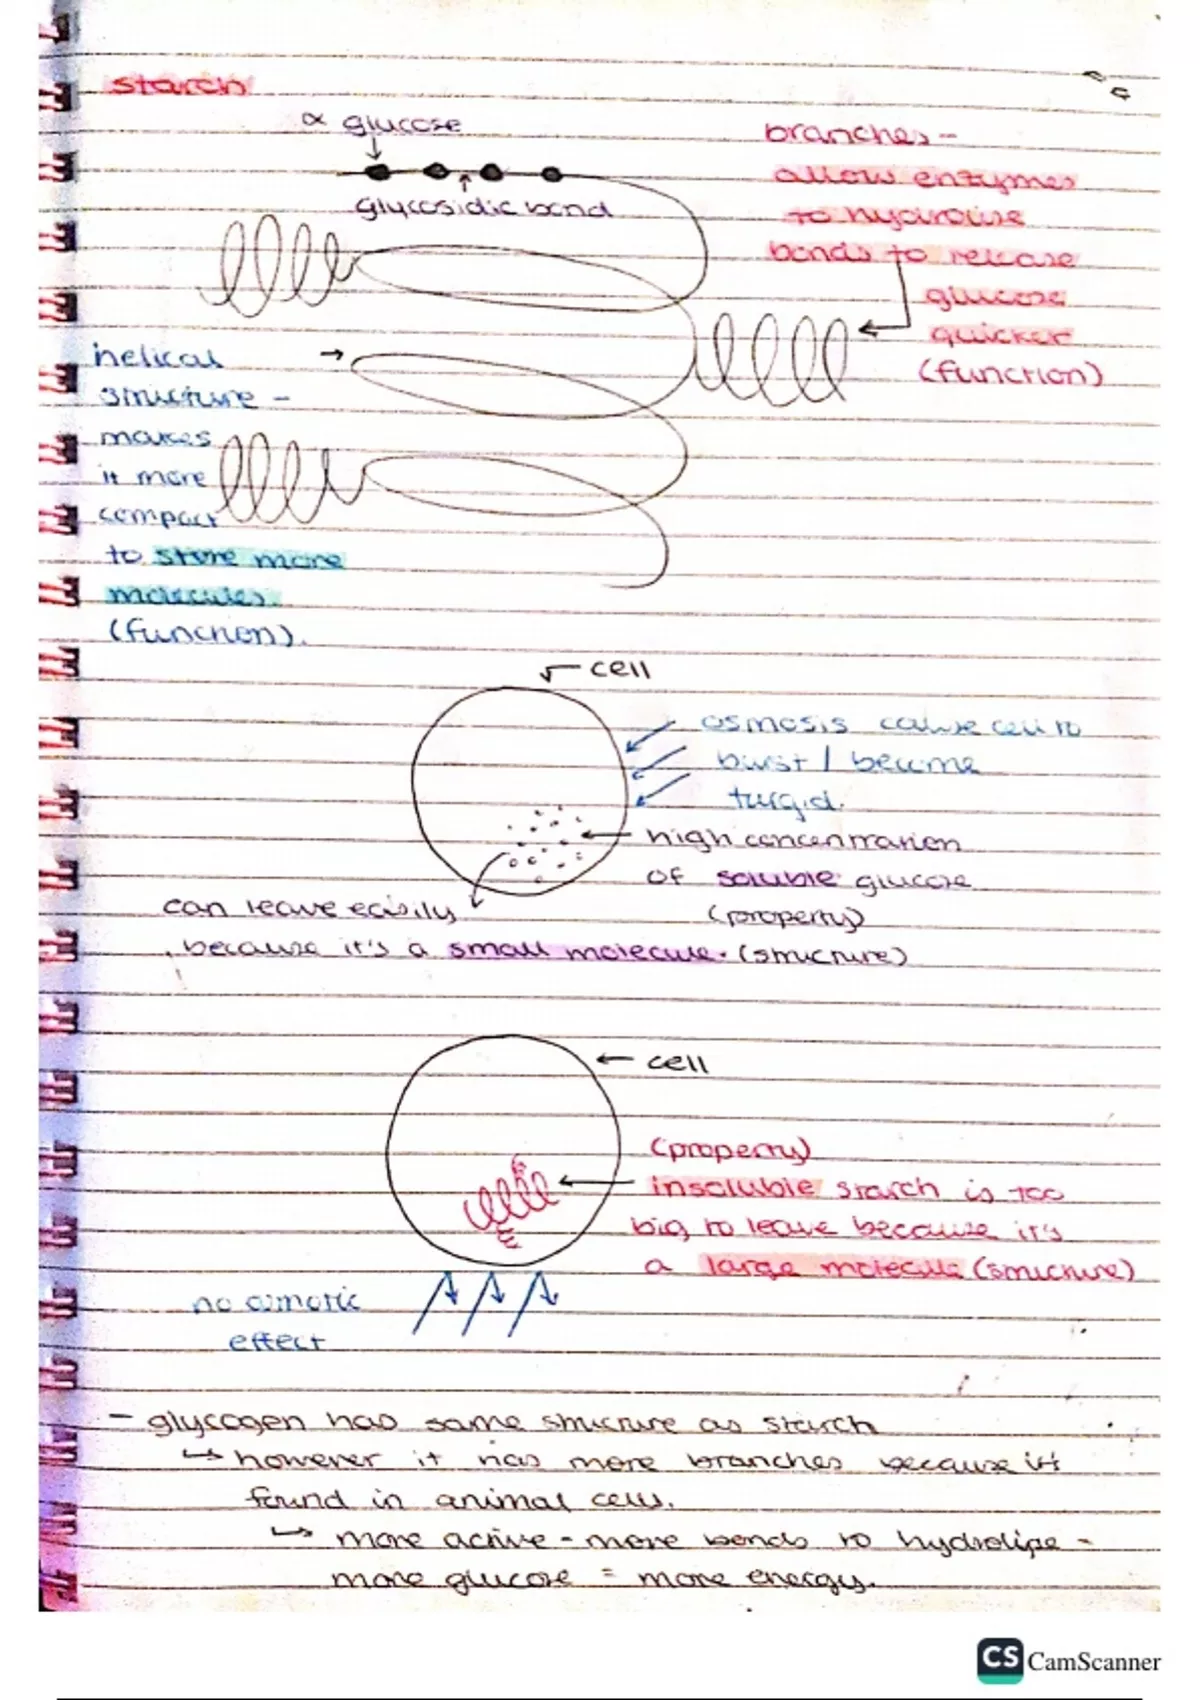 starch
α glucose
glycosidic bond
branches -
allow enzymes
to hydrolise
bonds to release
glucose
quicker
(function)
helical
structure -
makes
it more
compact
to store more
molecules.
(function).
cell
osmosis cause cell to
burst / become
turgid.
high concentration
of soluble glucose
(property)
can leave easily
because it's a small molecule. (structure)
cell
(property)
insoluble starch is too
big to leave because it's
a large molecule (structure)
no osmotic
effect
- glycogen has same structure as starch
↳ however it has more branches because it's
found in animal cells.
↳ more active - more bonds to hydrolise -
more glucose = more energy.
CS CamScanner